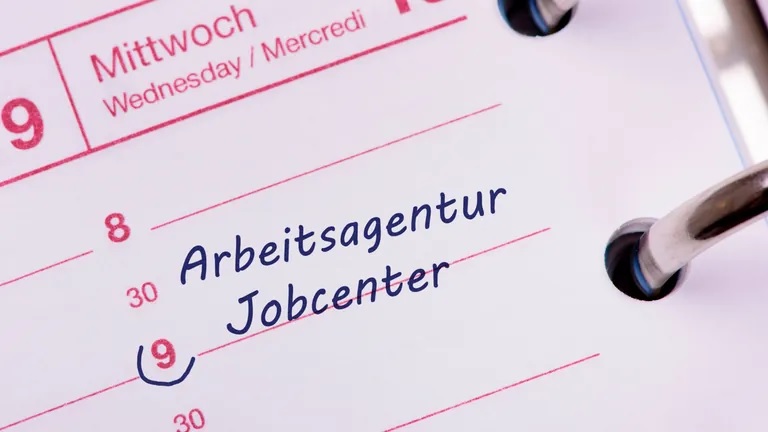 9
Mittwoch
Wednesday / Mercredi
8
Arbeitsagentur
30
Jobcenter
9
30